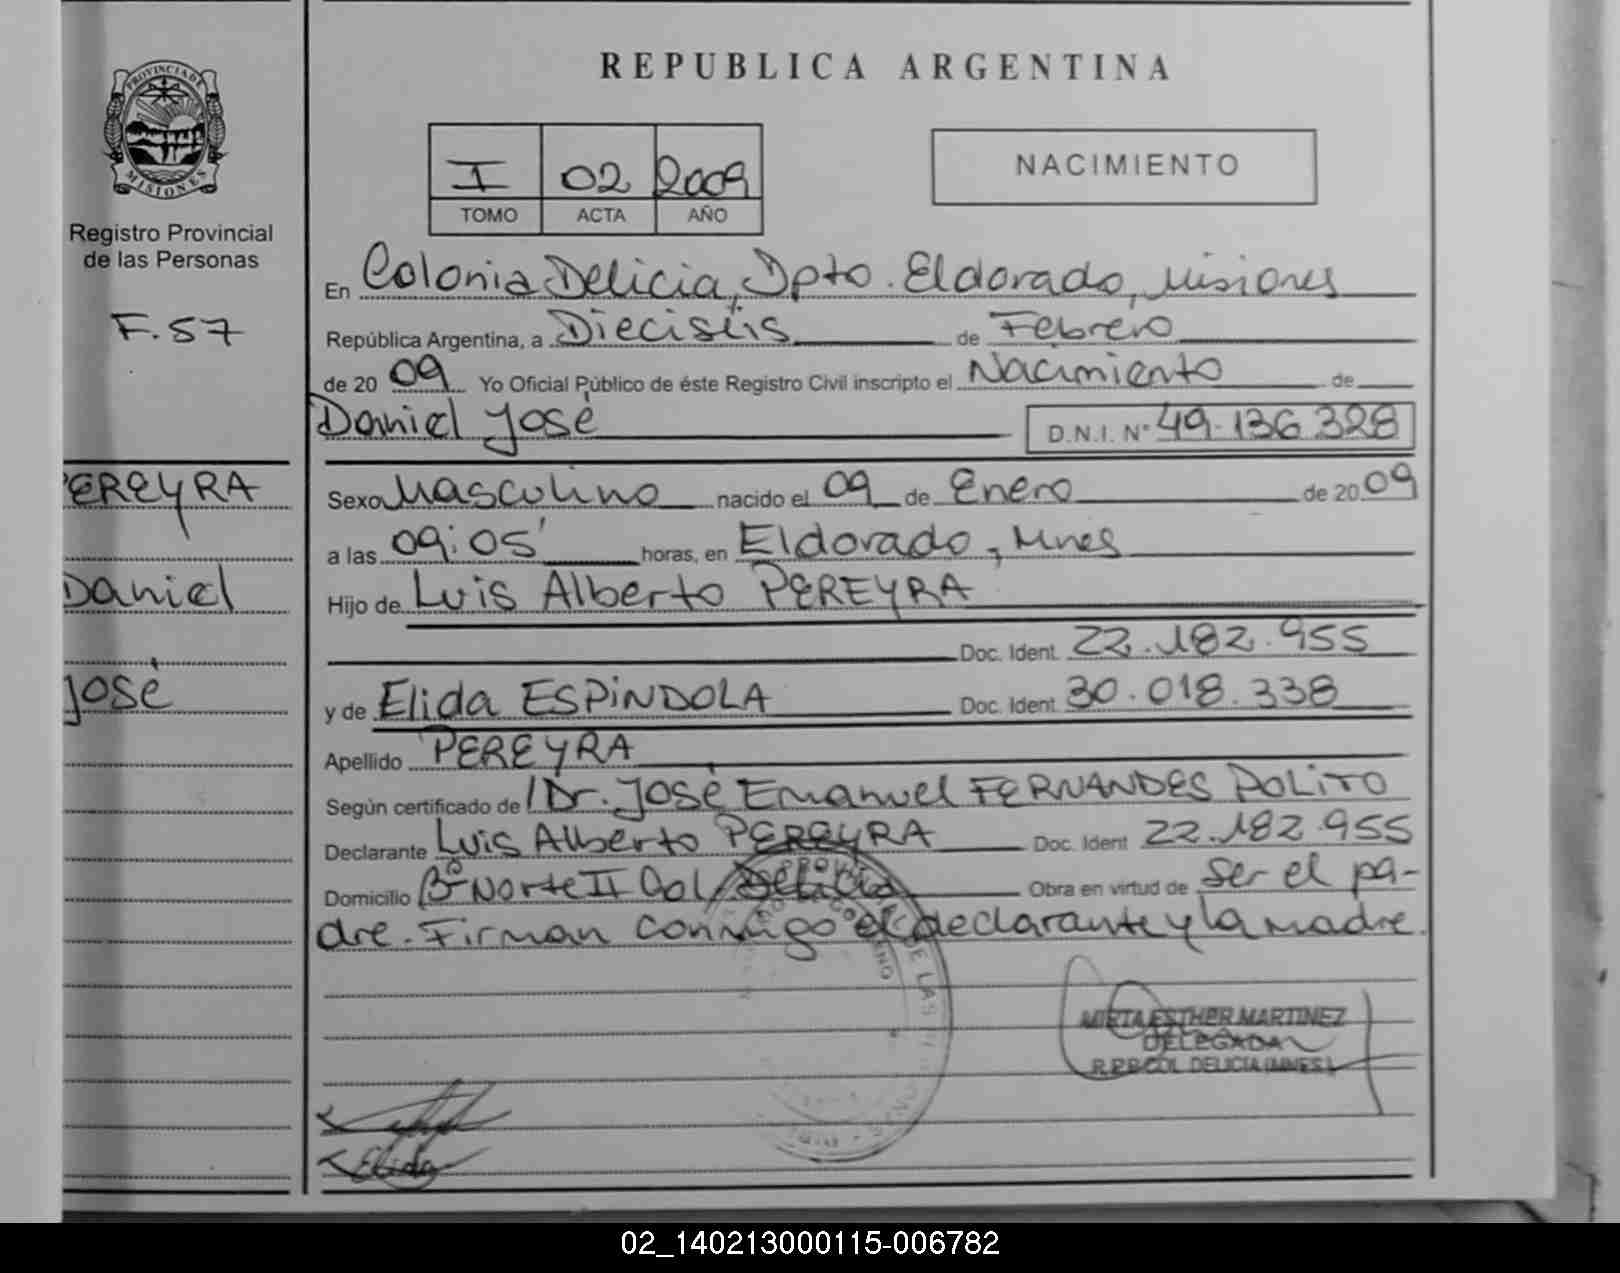 PROVINCIA DE
MISIONES
Registro Provincial
de las Personas
F.57
PEREYRA
Daniel
José
REPUBLICA ARGENTINA
I 02 2009
TOMO ACTA AÑO
NACIMIENTO
En Colonia Delicia, Dpto. Eldorado, Misiones
República Argentina, a Dieciséis de Febrero
de 20 09 Yo Oficial Público de éste Registro Civil inscripto el Nacimiento de
Daniel José D.N.I. Nº 49.136.328
Sexo Masculino nacido el 09 de Enero de 20 09
a las 09:05' horas, en Eldorado, Mnes
Hijo de Luis Alberto PEREYRA
Doc. Ident. 22.182.955
y de Elida ESPINDOLA Doc. Ident. 30.018.338
Apellido PEREYRA
Según certificado de Dr. José Emanuel FERNANDES POLITO
Declarante Luis Alberto PEREYRA Doc. Ident 22.182.955
Domicilio Bº Norte II Col. Delicia Obra en virtud de ser el pa-
dre. Firman conmigo el declarante y la madre.
MIRTA ESTHER MARTINEZ
DELEGADA
R.P.P. COL DELICIA (MNES)
Elida
02_140213000115-006782